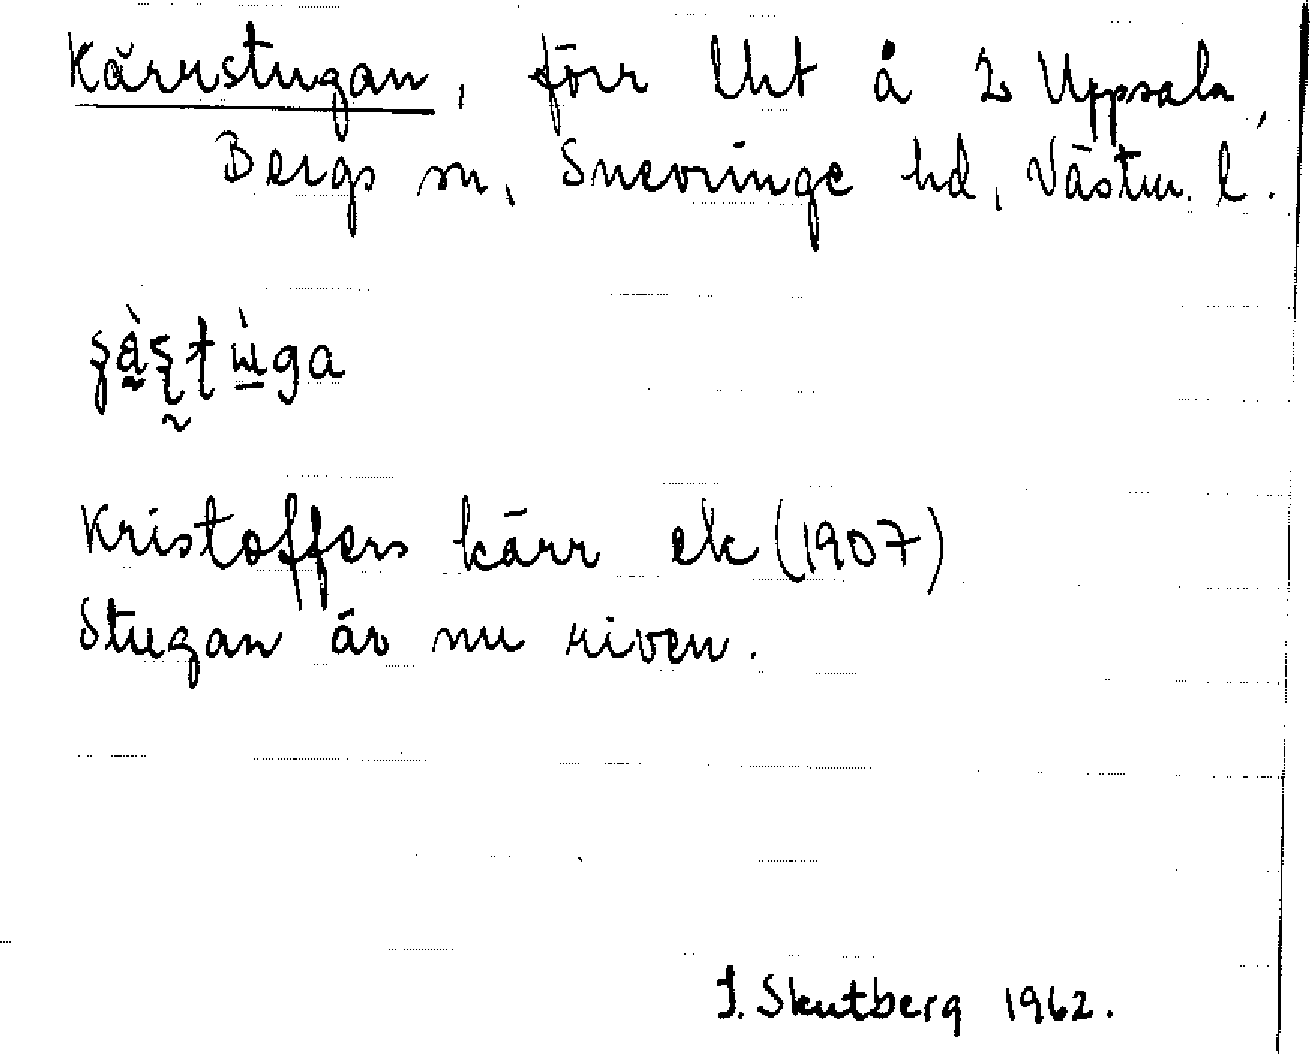 Kärrstugan, förr lht å 2 Uppsala,
Bergs sn, Snevringe hd, Västm. l.
Kristoffers kärr ek (1907)
Stugan är nu riven.
I. Skutberg 1962.